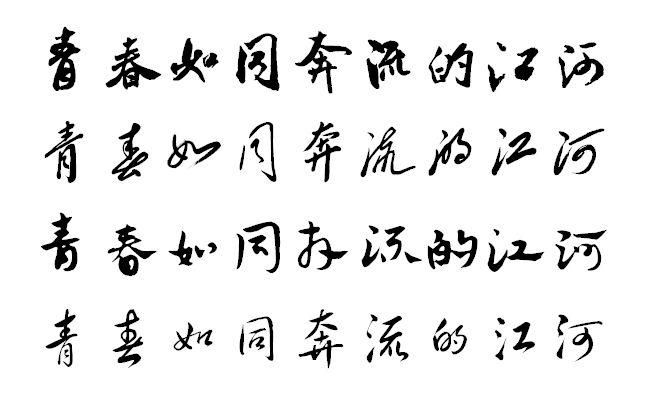 青春如同奔流的江河
青春如同奔流的江河
青春如同奔流的江河
青春如同奔流的江河